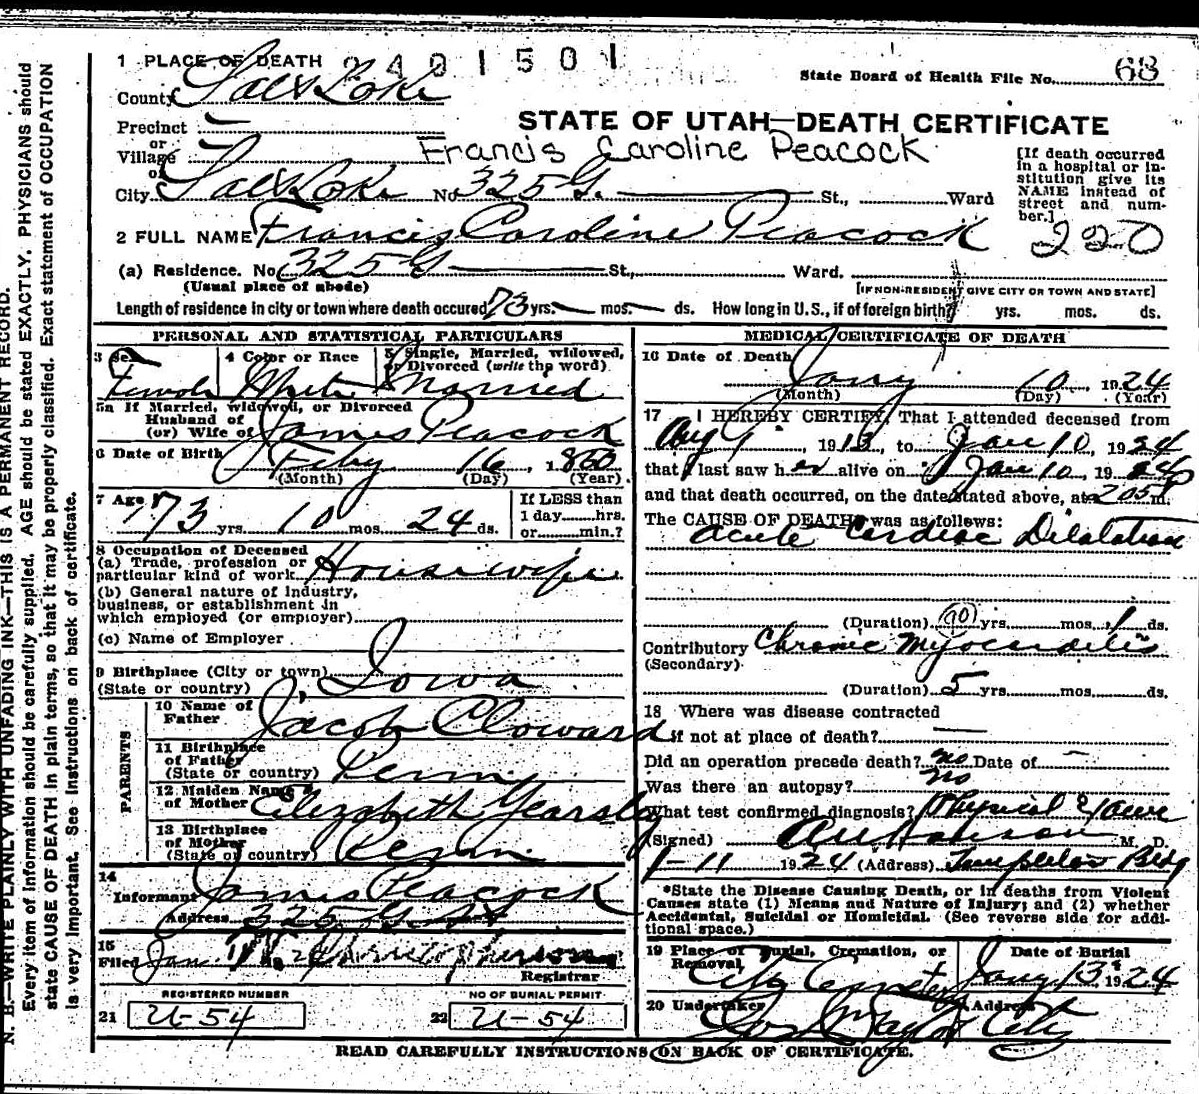 1 PLACE OF DEATH 2401501
State Board of Health File No. 68
County Salt Lake
STATE OF UTAH—DEATH CERTIFICATE
Precinct
or
Village
Francis Caroline Peacock
or
City Salt Lake No. 325 G. St., Ward
[If death occurred in a hospital or institution give its NAME instead of street and number.]
2 FULL NAME Francis Caroline Peacock
220
(a) Residence. No. 325 G St., Ward.
(Usual place of abode)
[IF NON-RESIDENT GIVE CITY OR TOWN AND STATE]
Length of residence in city or town where death occured 73 yrs. mos. ds. How long in U.S., if of foreign birth? yrs. mos. ds.
PERSONAL AND STATISTICAL PARTICULARS
3 Sex
Female
4 Color or Race
White
5 Single, Married, widowed, or Divorced (write the word)
Married
5a If Married, widowed, or Divorced
Husband of
(or) Wife of James Peacock
6 Date of Birth Feby 16, 1850
(Month) (Day) (Year)
7 Age 73 yrs. 10 mos. 24 ds.
If LESS than
1 day hrs.
or min.?
8 Occupation of Deceased
(a) Trade, profession or
particular kind of work Housewife
(b) General nature of industry,
business, or establishment in
which employed (or employer)
(c) Name of Employer
9 Birthplace (City or town)
(State or country) Iowa
PARENTS
10 Name of
Father Jacob Cloward
11 Birthplace
of Father
(State or country) Penn
12 Maiden Name
of Mother Elizabeth Yearsley
13 Birthplace
of Mother
(State or country) Penn
14
Informant James Peacock
Address 325 G St
15
Filed Jan.
Registrar
REGISTERED NUMBER
21 U-54
NO OF BURIAL PERMIT
22 U-54
MEDICAL CERTIFICATE OF DEATH
16 Date of Death
Jany 10, 1924
(Month) (Day) (Year)
17 I HEREBY CERTIFY, That I attended deceased from
Aug 9, 1913, to Jan 10, 1924
that I last saw her alive on Jan 10, 1924
and that death occurred, on the date stated above, at 205 P m.
The CAUSE OF DEATH* was as follows:
Acute Cardiac Dilatation
(Duration) yrs. mos. 1 ds.
90
Contributory Chronic Myocarditis
(Secondary)
(Duration) 5 yrs. mos. ds.
18 Where was disease contracted
if not at place of death?
Did an operation precede death? no Date of
Was there an autopsy? no
What test confirmed diagnosis? Physical
(Signed) M. D.
1-11 1924 (Address) Templeton Bldg
*State the Disease Causing Death, or in deaths from Violent
Causes state (1) Means and Nature of Injury; and (2) whether
Accidental, Suicidal or Homicidal. (See reverse side for addi-
tional space.)
19 Place of Burial, Cremation, or
Removal
City Cemetery
Date of Burial
Jany 13, 1924
20 Undertaker
Jos Taylor
Address
City
READ CAREFULLY INSTRUCTIONS ON BACK OF CERTIFICATE.
N. B.—WRITE PLAINLY WITH UNFADING INK—THIS IS A PERMANENT RECORD.
Every item of information should be carefully supplied. AGE should be stated EXACTLY. PHYSICIANS should
state CAUSE OF DEATH in plain terms, so that it may be properly classified. Exact statement of OCCUPATION
is very important. See instructions on back of certificate.